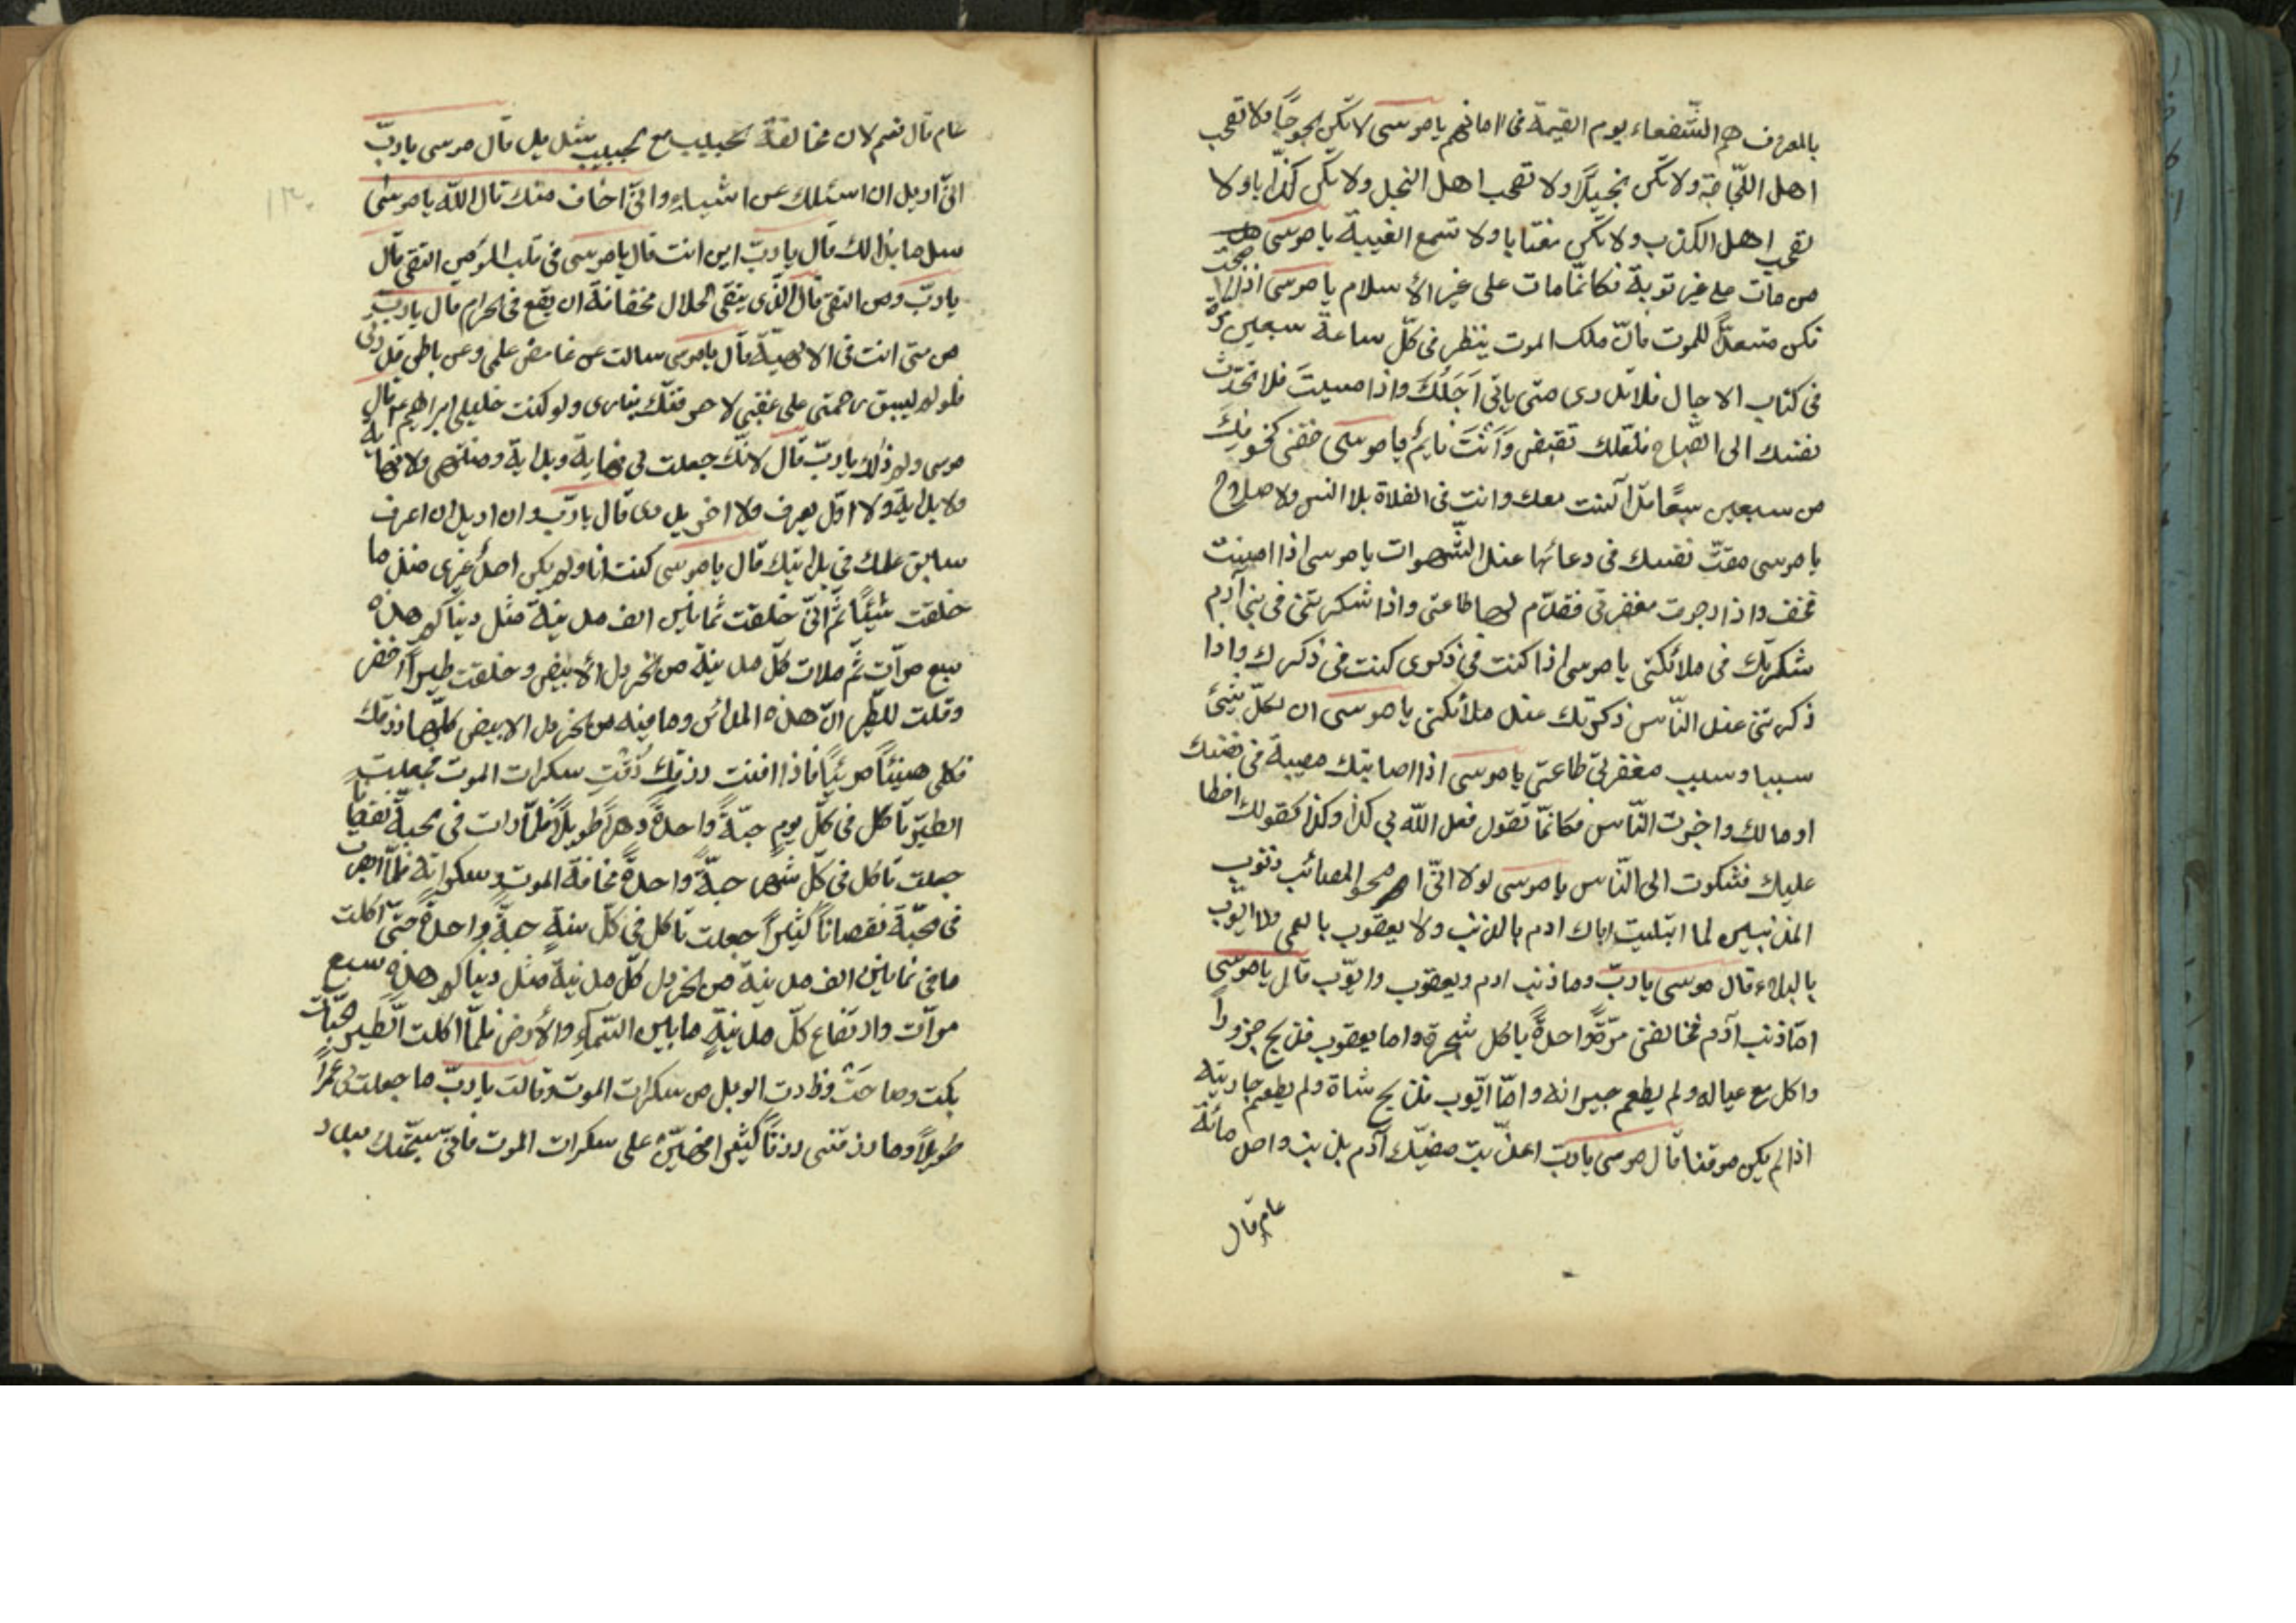 بالمعروف هم الشّفعاء يوم القيمة فى امانهم يا موسى لا تكن لجوجًا ولا تصحب
اهل اللّجاجة ولا تكن بخيلًا ولا تصحب اهل البخل ولا تكن كذّابا ولا
تصحب اهل الكذب ولا تكن مغتابا ولا تسمع الغيبة يا موسى
من مات على غير توبة فكانّما مات على غير الأسلام يا موسى اذا اصبحت
فكن مستعدًّا للموت فانّ ملك الموت ينظر فى كلّ ساعة سبعين مرّة
فى كتاب الاجال فلا تدرى متى ياتى اَجَلُكَ واذا امسيتَ فلا تحدّث
نفسك الى الصّباح فلعلّك تقبض وَاَنْتَ نايمٌ يا موسى خفنى كخوفك
من سبعين سبعًا بدا كنت معك وانت فى الفلاة بلا انس ولا صلاح
يا موسى مقتّ نفسك فى دعائها عند الشّهوات يا موسى اذا امنت
فخف واذا رجوت مغفرتى فقدّم لها طاعتى واذا شكرتنى فى بنى آدم
شكرتك فى ملائكتى يا موسى اذا كنت فى ذكرى كنت فى ذكرك واذا
ذكرتنى عند النّاس ذكرتك عند ملائكتى يا موسى ان لكلّ شيئ
سببا وسبب مغفرتى طاعتى يا موسى اذا اصابتك مصيبة فى نفسك
او مالك واخبرت النّاس فكانمّا تقول فعل اللّه بى كذا وكذا كقولك اخطا
عليك فشكوت الى النّاس يا موسى لولا انّى امحو المصائب ذنوب
المذنبين لما ابتليت اباك ادم بالذنب ولا يعقوب بالعمى ولا ايّوب
بالبلاء قال موسى يا ربّ وما ذنب ادم ويعقوب وايّوب قال يا موسى
امّا ذنب آدم فخالفنى مرّةً واحدةً ياكل شجرة واما يعقوب فذبح جزورًا
واكل مع عياله ولم يطعم جيرانه وامّا ايّوب فذبح شاة ولم يطعم جاريته
اذا لم يكن موقنا قال موسى يا ربّ اعذّبت صفيّك آدم بذنب واحد مائة
عام قال
عام قال نعم لان مخالفة الحبيب مع الحبيب شديد قال موسى يا ربّ
انّى اريد ان اسئلك عن اشياء وانّى اخاف منك قال اللّه يا موسى
سل ما بدا لك قال يا ربّ اين انت قال يا موسى فى قلب المؤمن التقى قال
يا ربّ ومن التقى قال الّذى يتقى الحلال مخافة ان يقع فى الحرام قال يا ربّ
من متى انت فى الالهيّة قال يا موسى سالت عن غامض علمى وعن باطن قدرتى
فلو لم يسبق رحمتى على غضبى لاحرقتك بنارى ولو كنت خليلى ابراهيم عم قال
موسى ولم ذلك يا ربّ قال لانّك جعلت لى نهاية وبداية ومنتهى ولا نهاية
ولا بداية ولا اوّل يعرف ولا اخر يدرى قال يا ربّ وان اريد ان اعرف
سابق علمك فى بدايتك قال يا موسى كنت انا ولم يكن احدٌ غيرى منذ ما
خلقت شيئًا ثمّ انّى خلقت ثمانين الف مدينة مثل دنياكم هذه
سبع مرّات ثمّ ملات كلّ مدينة من الخردل الأبيض وخلقت طيرًا اخضر
وقلت للطّير انّ هذه المدائن وما فيه من الخردل الابيض كلّها رزقك
فكلى هنيئًا مريئًا فاذا افنت رزقك ذُقتِ سكرات الموت فجعلت
الطير تاكل فى كلّ يوم حبّةً واحدةً دهرًا طويلًا فلمّا رات فى الحبّة نقصانا
جعلت تاكل فى كلّ شهر حبّةً واحدةً مخافة الموت وسكراته فلمّا ابصرت
فى محبّة نقصانًا كثيرًا جعلت تاكل فى كلّ سنةٍ حبةً واحدةً حتّى اكلت
ما فى ثمانين الف مدينة من الخردل كلّ مدينة مثل دنياكم هذه سبع
مرّات وارتفاع كلّ مدينةٍ ما بين السّماء والأرض فلمّا اكلت الطير الحبّات
بكت وصاحَتْ وزادت الويل من سكرات الموت وقالت يا ربّ ما جعلت لى عمرًا
طويلًا وما رزقتنى رزقًا كثيرا على سكرات الموت